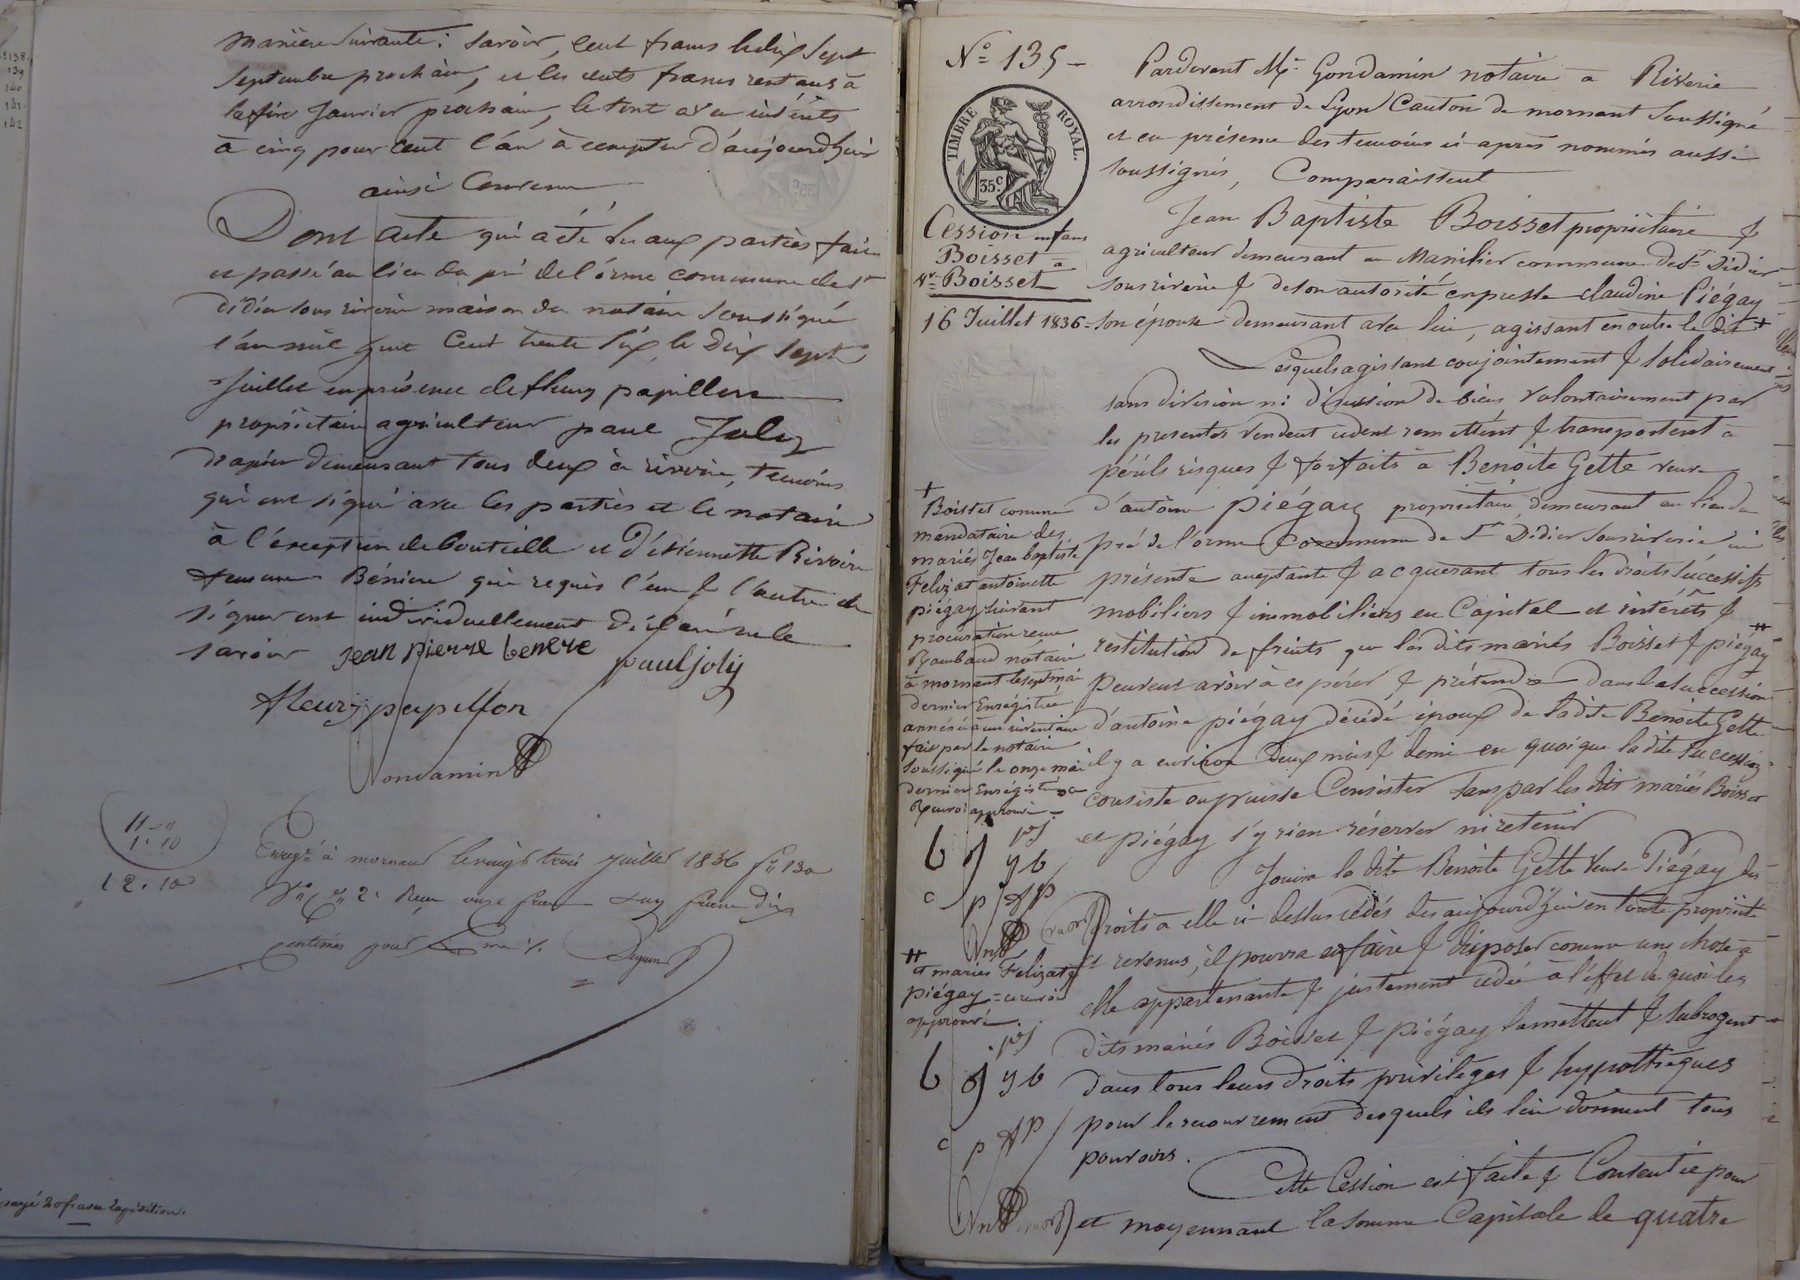 manière suivante : savoir, cent francs le dix sept
septembre prochain, et les cents francs restans à
la fin Janvier prochain, le tout avec intérêts
à cinq pour cent l'an à compter d'aujourd'hui
ainsi Convenu
Dont acte qui a été lu aux parties fait
et passé au lieu du pré de l'orme commune de St
didier sous riverie maison du notaire soussigné
l'an mil huit Cent trente six, le dix sept
Juillet en présence de fleury papillon
propriétaire agriculteur paul Joly
drapier demeurant tous deux à riverie, témoins
qui ont signé avec les parties et le notaire
à l'exception de bouteille et d'étiennette Rivoire
femme Bénière qui requis l'un & l'autre de
signer ont individuellement déclaré ne le
savoir jean pierre benere paul joly
fleury papillon
Gondamin
11 - "
1 - 10
12 . 10
Enregé à mornant le vingt trois juillet 1836 fo 130
Reçu onze francs un franc dix
centimes pour
payé 20f avec l'expédition.
138
139
140
141
142
No 135 -
TIMBRE ROYAL.
35c
Cession enfans
Boisset à
Ve Boisset
16 Juillet 1836 -
Pardevant Me Gondamin notaire à Riverie
arrondissement de Lyon Canton de mornant Soussigné
et en présence des temoins ci après nommés aussi
soussignés, Comparaissent
Jean Baptiste Boisset propriétaire &
agriculteur demeurant au Manilier commune de St Didier
sous riverie & de son autorité expresse claudine Piégay
son épouse demeurant avec lui, agissant en outre le dit +
Lesquels agissant conjointement & solidairement
sans division ni discussion de biens volontairement par
les présentes vendent cedent remettent & transportent à
périls risques & forfaits à Benoite Gette veuve
d'antoine piégay propriétaire, demeurant au lieu du
pré de l'orme Commune de St Didier sous riverie ici
présente acceptante & acquerant tous les droits successifs
mobiliers & immobiliers en Capital et intérêts &
restitution de fruits que les dits mariés Boisset & piégay #
peuvent avoir à espérer & prétendre dans la succession
d'antoine piégay décédé époux de ladite Benoite Gette
il y a environ deux mois & demi en quoi que la dite succession
consiste ou puisse Consister sans par les dits mariés Boisset
et piégay s'y rien réserver ni retenir
Jouira la dite Benoite Gette veuve Piégay des
Droits à elle ci dessus cédés dès aujourd'hui en toute propriété
et revenus, il pourra en faire & disposer comme une chose à
elle appartenante & justement cédée à l'effet de quoi les
dits mariés Boisset & piégay la mettent & subrogent
dans tous leurs droits privilèges & hypothèques
pour le recouvrement desquels ils lui donnent tous
pouvoirs.
Cette Cession est faite & Consentie pour
et moyennant la somme Capitale de quatre
+
Boisset comme
mandataire des
mariés Jean baptiste
Felizat antoinette
piégay suivant
procuration reçue
Rambaud notaire
à mornant le sept mai
dernier Enregistrée
annexée à un inventaire
fait par le notaire
soussigné le onze mai
dernier Enregistré
Renvoi approuvé -
b J yb
c p AP
#
et mariés Felizat &
piégay = renvoi
approuvé.
b J yb
c p AP